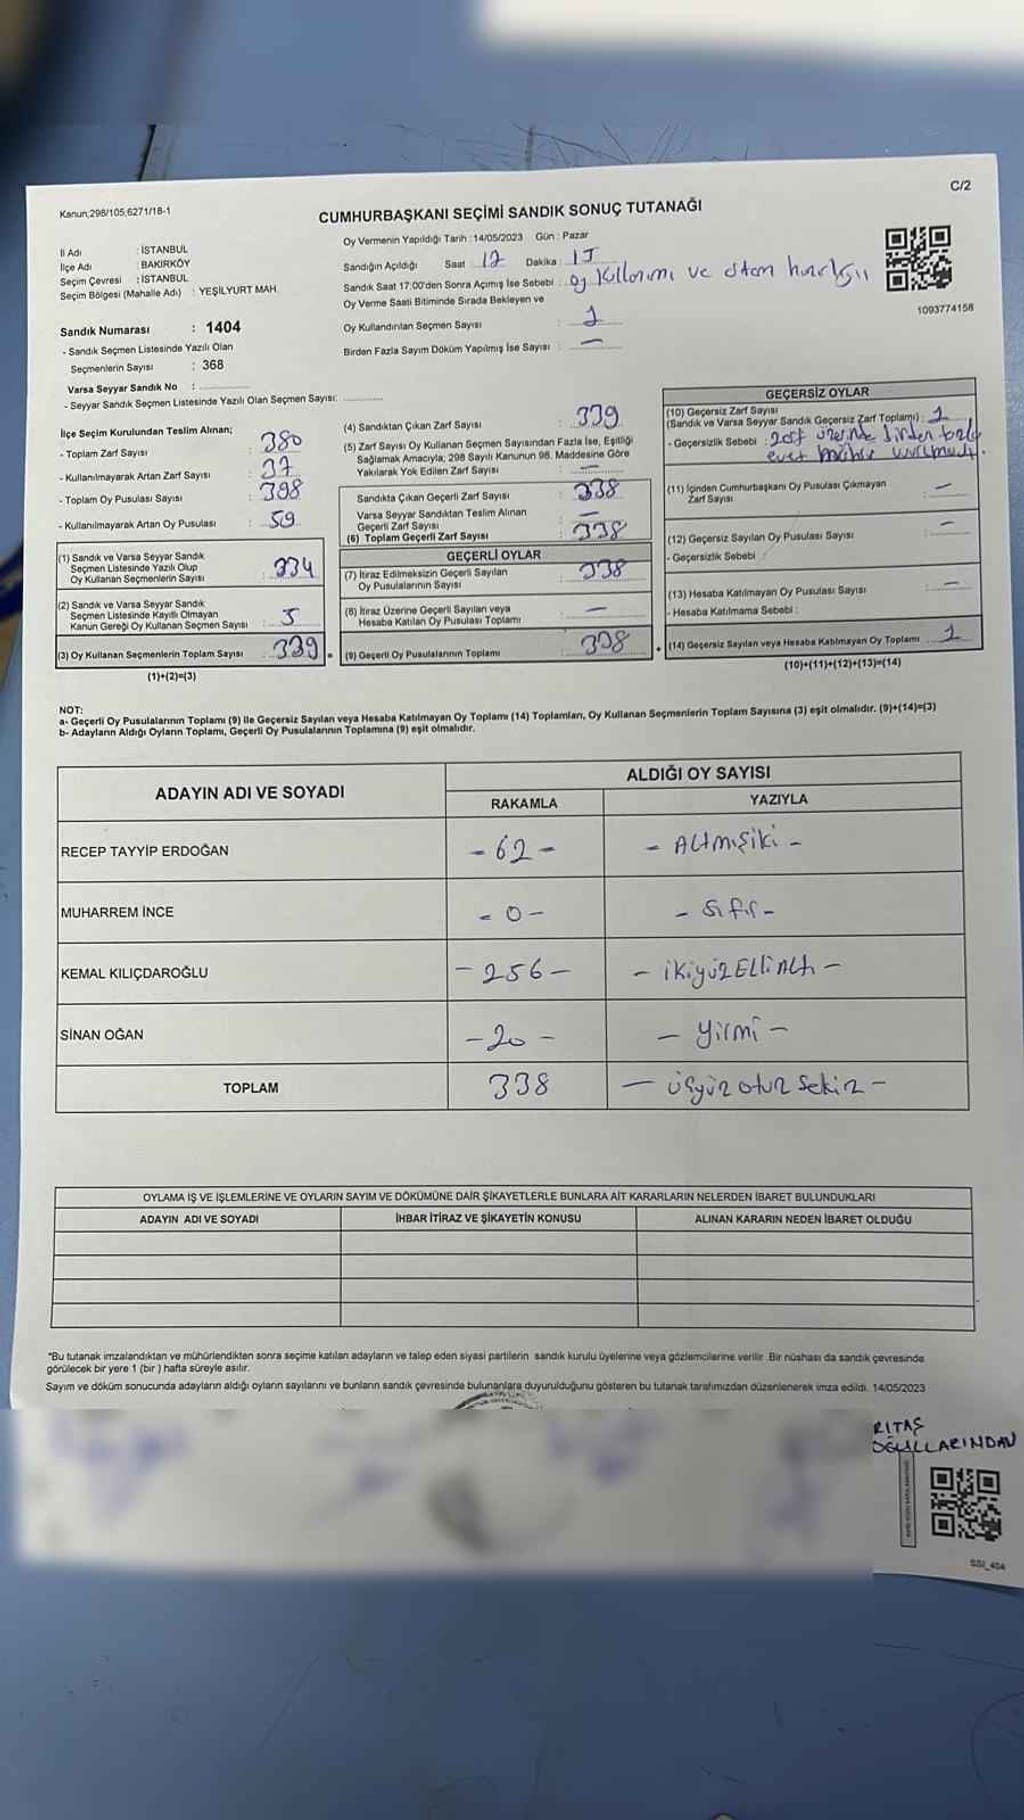 C/2
Kanun;298/105,6271/18-1
CUMHURBAŞKANI SEÇİMİ SANDIK SONUÇ TUTANAĞI
İl Adı : İSTANBUL
İlçe Adı : BAKIRKÖY
Seçim Çevresi : İSTANBUL
Seçim Bölgesi (Mahalle Adı) : YEŞİLYURT MAH.
Sandık Numarası : 1404
- Sandık Seçmen Listesinde Yazılı Olan
Seçmenlerin Sayısı : 368
Varsa Seyyar Sandık No :
- Seyyar Sandık Seçmen Listesinde Yazılı Olan Seçmen Sayısı:
Oy Vermenin Yapıldığı Tarih : 14/05/2023 Gün : Pazar
Sandığın Açıldığı Saat 17 Dakika : 15
Sandık Saat 17:00'den Sonra Açımış İse Sebebi : oy kullanımı ve
Oy Verme Saati Bitiminde Sırada Bekleyen ve
Oy Kullandırılan Seçmen Sayısı : 1
Birden Fazla Sayım Döküm Yapılmış İse Sayısı : —
1093774158
İlçe Seçim Kurulundan Teslim Alınan;
- Toplam Zarf Sayısı : 380
- Kullanılmayarak Artan Zarf Sayısı : 37
- Toplam Oy Pusulası Sayısı : 398
- Kullanılmayarak Artan Oy Pusulası : 59
(1) Sandık ve Varsa Seyyar Sandık
Seçmen Listesinde Yazılı Olup
Oy Kullanan Seçmenlerin Sayısı : 334
(2) Sandık ve Varsa Seyyar Sandık
Seçmen Listesinde Kayıtlı Olmayan
Kanun Gereği Oy Kullanan Seçmen Sayısı : 5
(3) Oy Kullanan Seçmenlerin Toplam Sayısı : 339
(1)+(2)=(3)
(4) Sandıktan Çıkan Zarf Sayısı : 339
(5) Zarf Sayısı Oy Kullanan Seçmen Sayısından Fazla İse, Eşitliği
Sağlamak Amacıyla; 298 Sayılı Kanunun 98. Maddesine Göre
Yakılarak Yok Edilen Zarf Sayısı : —
Sandıkta Çıkan Geçerli Zarf Sayısı : 338
Varsa Seyyar Sandıktan Teslim Alınan
Geçerli Zarf Sayısı : —
(6) Toplam Geçerli Zarf Sayısı : 338
GEÇERLİ OYLAR
(7) İtiraz Edilmeksizin Geçerli Sayılan
Oy Pusulalarının Sayısı : 338
(8) İtiraz Üzerine Geçerli Sayılan veya
Hesaba Katılan Oy Pusulası Toplamı : —
(9) Geçerli Oy Pusulalarının Toplamı : 338
GEÇERSİZ OYLAR
(10) Geçersiz Zarf Sayısı
(Sandık ve Varsa Seyyar Sandık Geçersiz Zarf Toplamı) : 1
- Geçersizlik Sebebi : zarf üzerinde birden fazla
evet mührü vurulmuş.
(11) İçinden Cumhurbaşkanı Oy Pusulası Çıkmayan
Zarf Sayısı : —
(12) Geçersiz Sayılan Oy Pusulası Sayısı : —
- Geçersizlik Sebebi :
(13) Hesaba Katılmayan Oy Pusulası Sayısı : —
- Hesaba Katılmama Sebebi :
(14) Geçersiz Sayılan veya Hesaba Katılmayan Oy Toplamı : 1
(10)+(11)+(12)+(13)=(14)
NOT:
a- Geçerli Oy Pusulalarının Toplamı (9) ile Geçersiz Sayılan veya Hesaba Katılmayan Oy Toplamı (14) Toplamları, Oy Kullanan Seçmenlerin Toplam Sayısına (3) eşit olmalıdır. (9)+(14)=(3)
b- Adayların Aldığı Oyların Toplamı, Geçerli Oy Pusulalarının Toplamına (9) eşit olmalıdır.
ADAYIN ADI VE SOYADI
ALDIĞI OY SAYISI
RAKAMLA YAZIYLA
RECEP TAYYİP ERDOĞAN - 62 - - Altmışiki -
MUHARREM İNCE - 0 - - Sıfır -
KEMAL KILIÇDAROĞLU - 256 - - ikiyüzElliAltı -
SİNAN OĞAN - 20 - - yirmi -
TOPLAM 338 - üçyüz otuz sekiz -
OYLAMA İŞ VE İŞLEMLERİNE VE OYLARIN SAYIM VE DÖKÜMÜNE DAİR ŞİKAYETLERLE BUNLARA AİT KARARLARIN NELERDEN İBARET BULUNDUKLARI
ADAYIN ADI VE SOYADI İHBAR İTİRAZ VE ŞİKAYETİN KONUSU ALINAN KARARIN NEDEN İBARET OLDUĞU
*Bu tutanak imzalandıktan ve mühürlendikten sonra seçime katılan adayların ve talep eden siyasi partilerin sandık kurulu üyelerine veya gözlemcilerine verilir .Bir nüshası da sandık çevresinde
görülecek bir yere 1 (bir ) hafta süreyle asılır.
Sayım ve döküm sonucunda adayların aldığı oyların sayılarını ve bunların sandık çevresinde bulunanlara duyurulduğunu gösteren bu tutanak tarafımızdan düzenlenerek imza edildi. 14/05/2023
RITAŞ
OĞULLARINDAN
SSI_404